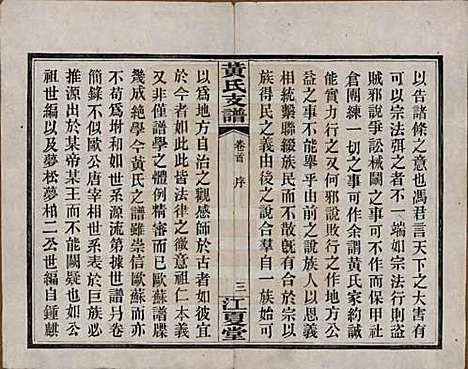 以告諸條之意也馮君言天下之大
可以宗法弭之者不一端如宗法行則盜
賊邪說爭訟械鬭之事可不作而保甲社
倉團練一切之事可作余謂黃氏家約誠
能實力行之又何邪說敗行之作地方公
益之事不能舉乎由前之說以宗法
相繫聯綴族民而不散旣有合於
族得民之義由後之說合羣自一族始可
黃氏支譜
卷首 序
三
江夏堂
以爲地方自治之觀感師於古者如彼宜
於今者如此此皆法律之微意祖仁本義
非僅經學譜學之體例精審也歐蘇譜牒
幾成絶學今黃氏之譜雖崇信歐蘇而亦
不苟爲坿和如世系源流第據世譜丹卷
簡錄不似歐公唐宰相世系表於巨族必
推源出於某帝某王而不能關疑也又如
祖世編以及夢松夢梅二公世編自鍾麒